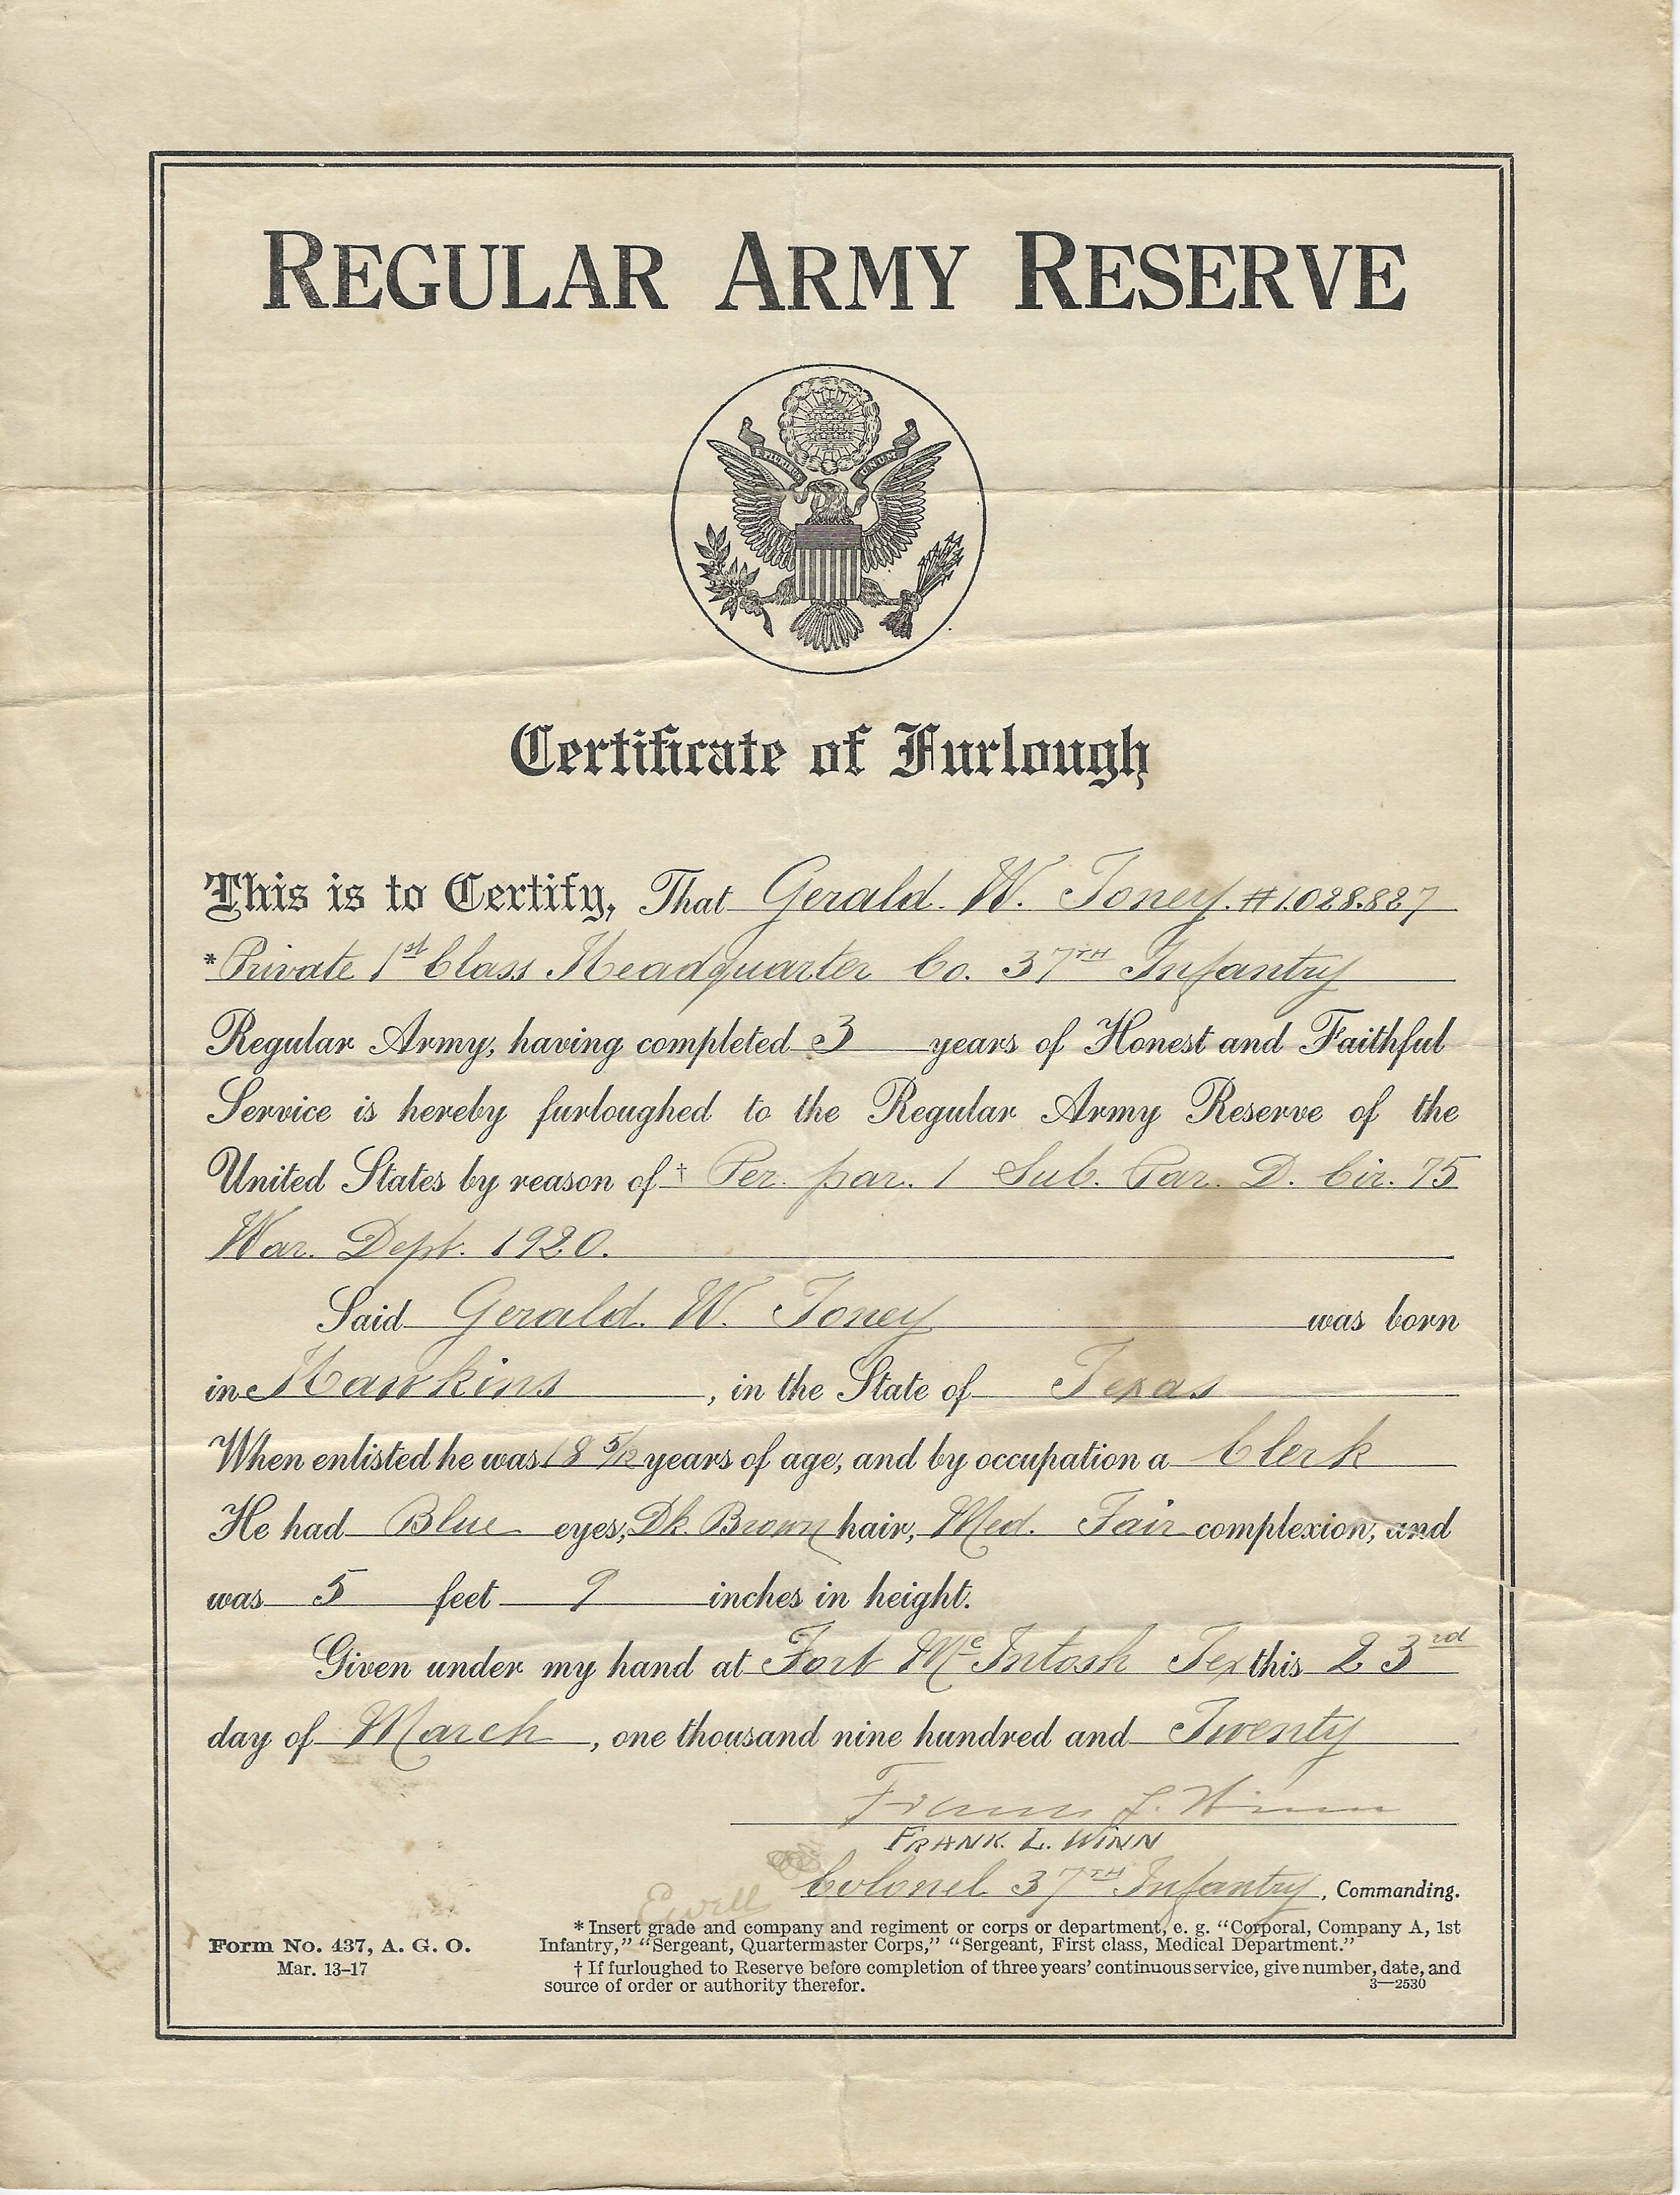 REGULAR ARMY RESERVE
E PLURIBUS UNUM
Certificate of Furlough
This is to Certify, That Gerald. W. Toney. #1.028.827
*Private 1st Class Headquarter Co. 37TH Infantry
Regular Army, having completed 3 years of Honest and Faithful
Service is hereby furloughed to the Regular Army Reserve of the
United States by reason of † Per. par. 1 Sub. Par. D. Cir. 75
War. Dept. 1920.
Said Gerald. W. Toney was born
in Hawkins, in the State of Texas
When enlisted he was 18 5/12 years of age, and by occupation a Clerk
He had Blue eyes, Dk. Brown hair, Med. Fair complexion, and
was 5 feet 9 inches in height.
Given under my hand at Fort Mc Intosh Tex this 23rd
day of March, one thousand nine hundred and Twenty
Frank L. Winn
FRANK. L. WINN
Colonel 37TH Infantry, Commanding.
Ewell
* Insert grade and company and regiment or corps or department, e. g. "Corporal, Company A, 1st
Infantry," "Sergeant, Quartermaster Corps," "Sergeant, First class, Medical Department."
† If furloughed to Reserve before completion of three years' continuous service, give number, date, and
source of order or authority therefor.
3—2530
Form No. 437, A. G. O.
Mar. 13-17